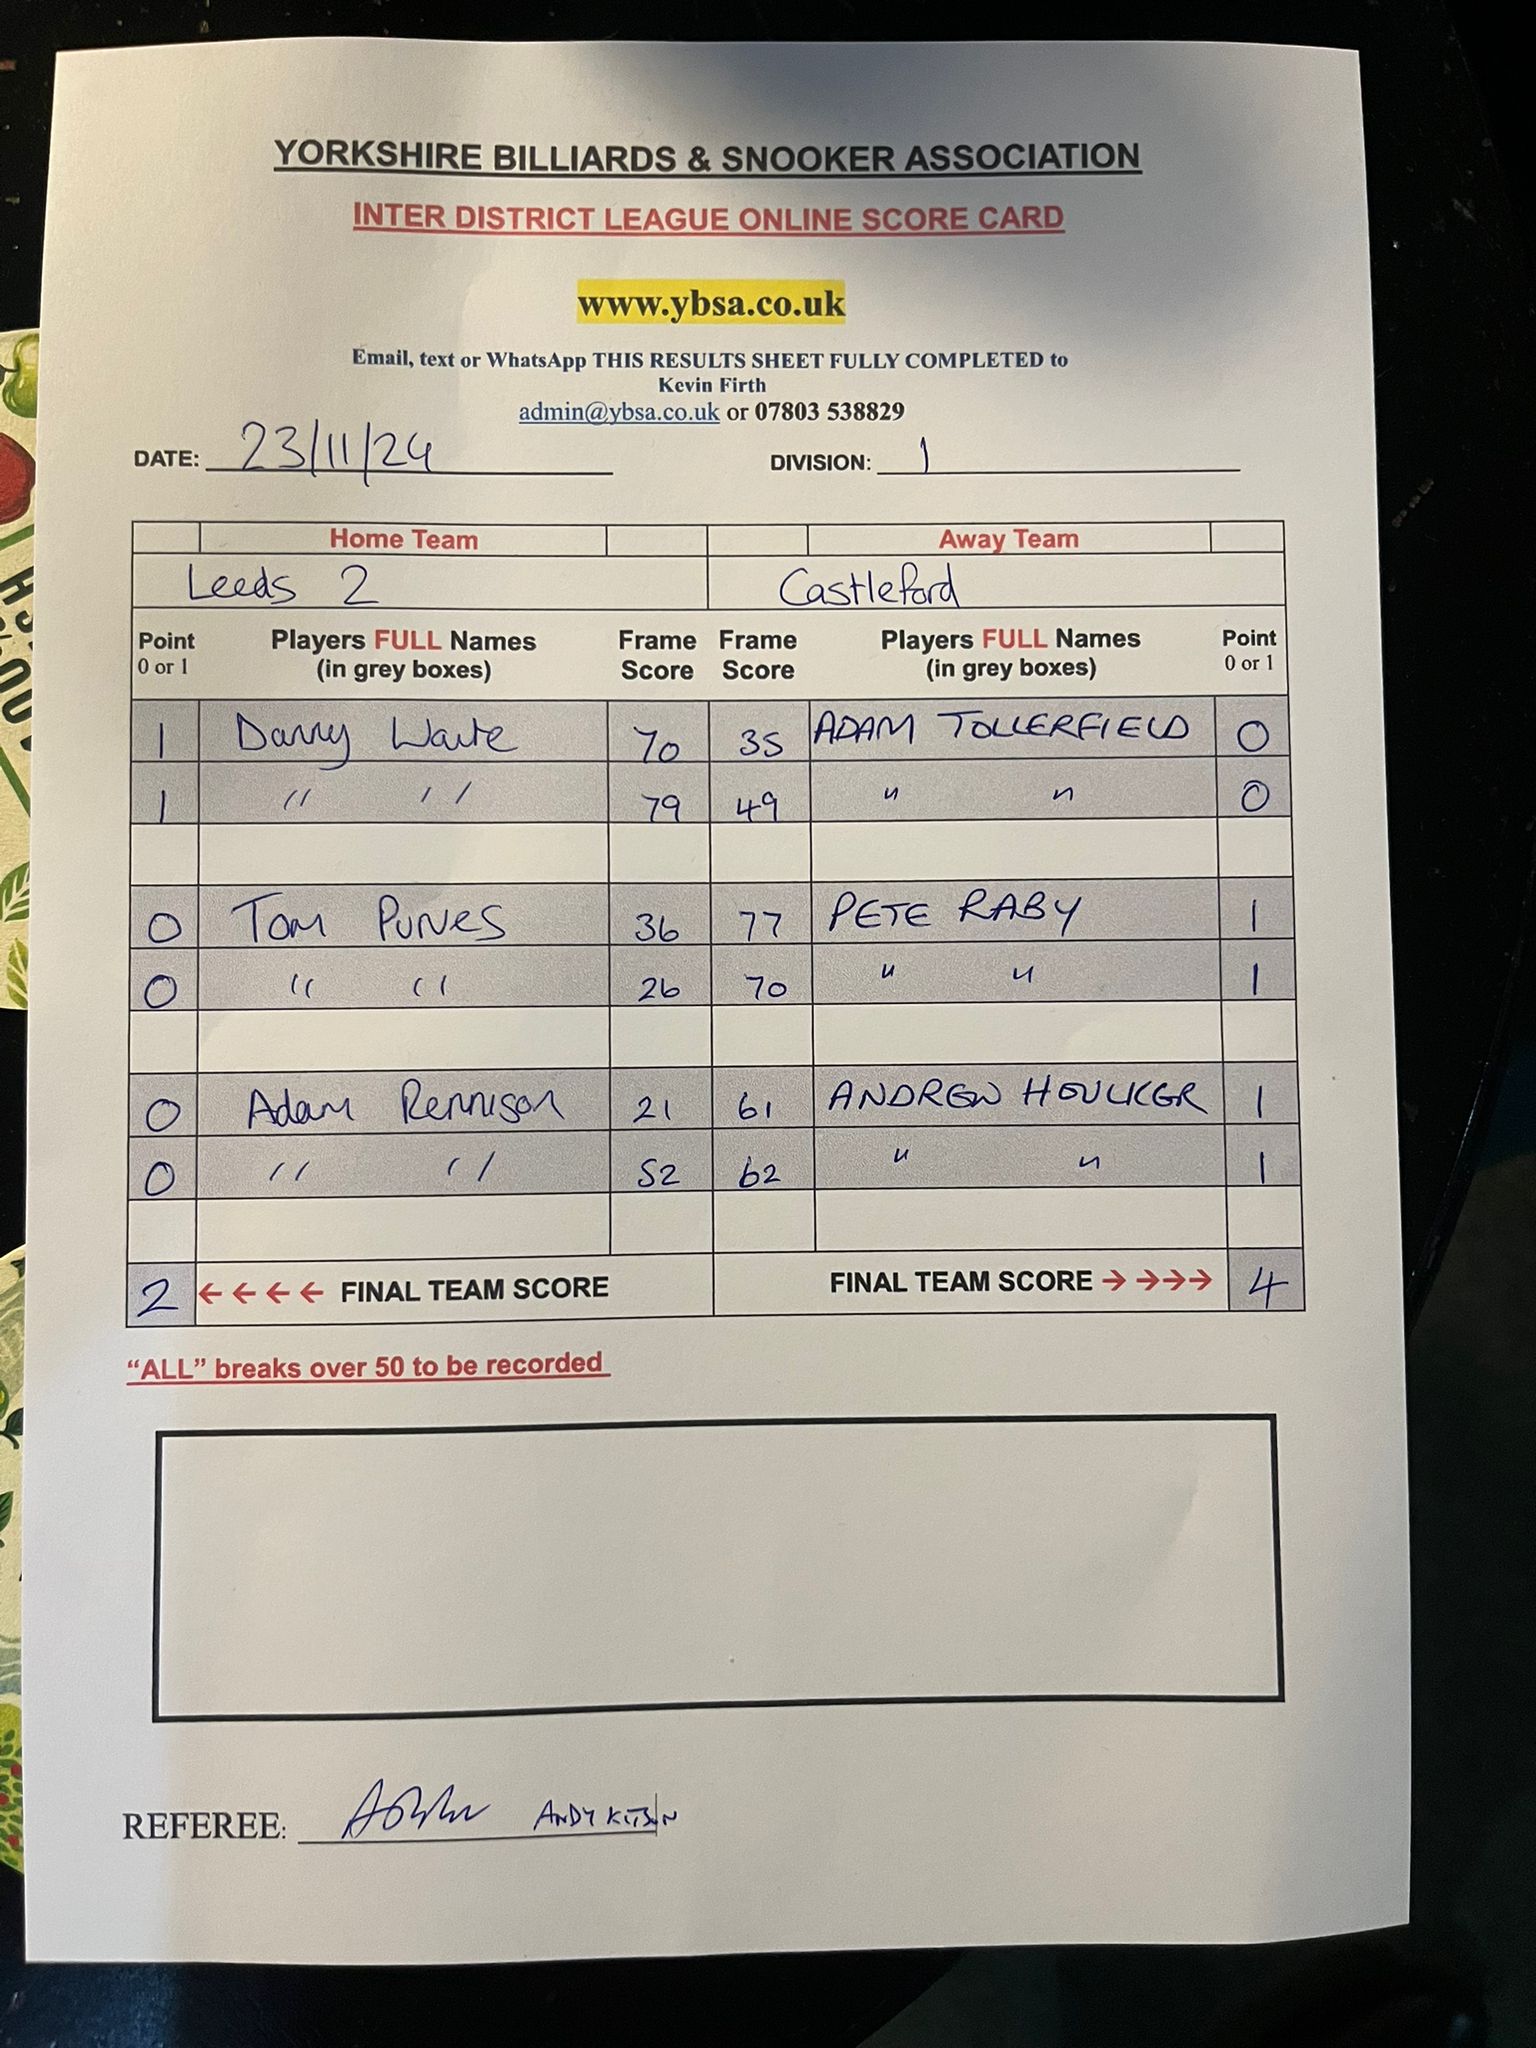 YORKSHIRE BILLIARDS & SNOOKER ASSOCIATION
INTER DISTRICT LEAGUE ONLINE SCORE CARD
www.ybsa.co.uk
Email, text or WhatsApp THIS RESULTS SHEET FULLY COMPLETED to
Kevin Firth
admin@ybsa.co.uk or 07803 538829
DATE: 23/11/24 DIVISION: 1
Home Team Away Team
Leeds 2 Castleford
Point Players FULL Names Frame Frame Players FULL Names Point
0 or 1 (in grey boxes) Score Score (in grey boxes) 0 or 1
1 Danny Waite 70 35 ADAM TOLLERFIELD 0
1 " " 79 49 " " 0
0 Tom Purves 36 77 PETE RABY 1
0 " " 26 70 " " 1
0 Adam Rennison 21 61 ANDREW HOULKER 1
0 " " 52 62 " " 1
2 ←←←← FINAL TEAM SCORE FINAL TEAM SCORE →→→→ 4
“ALL” breaks over 50 to be recorded
REFEREE: ANDY KITSON